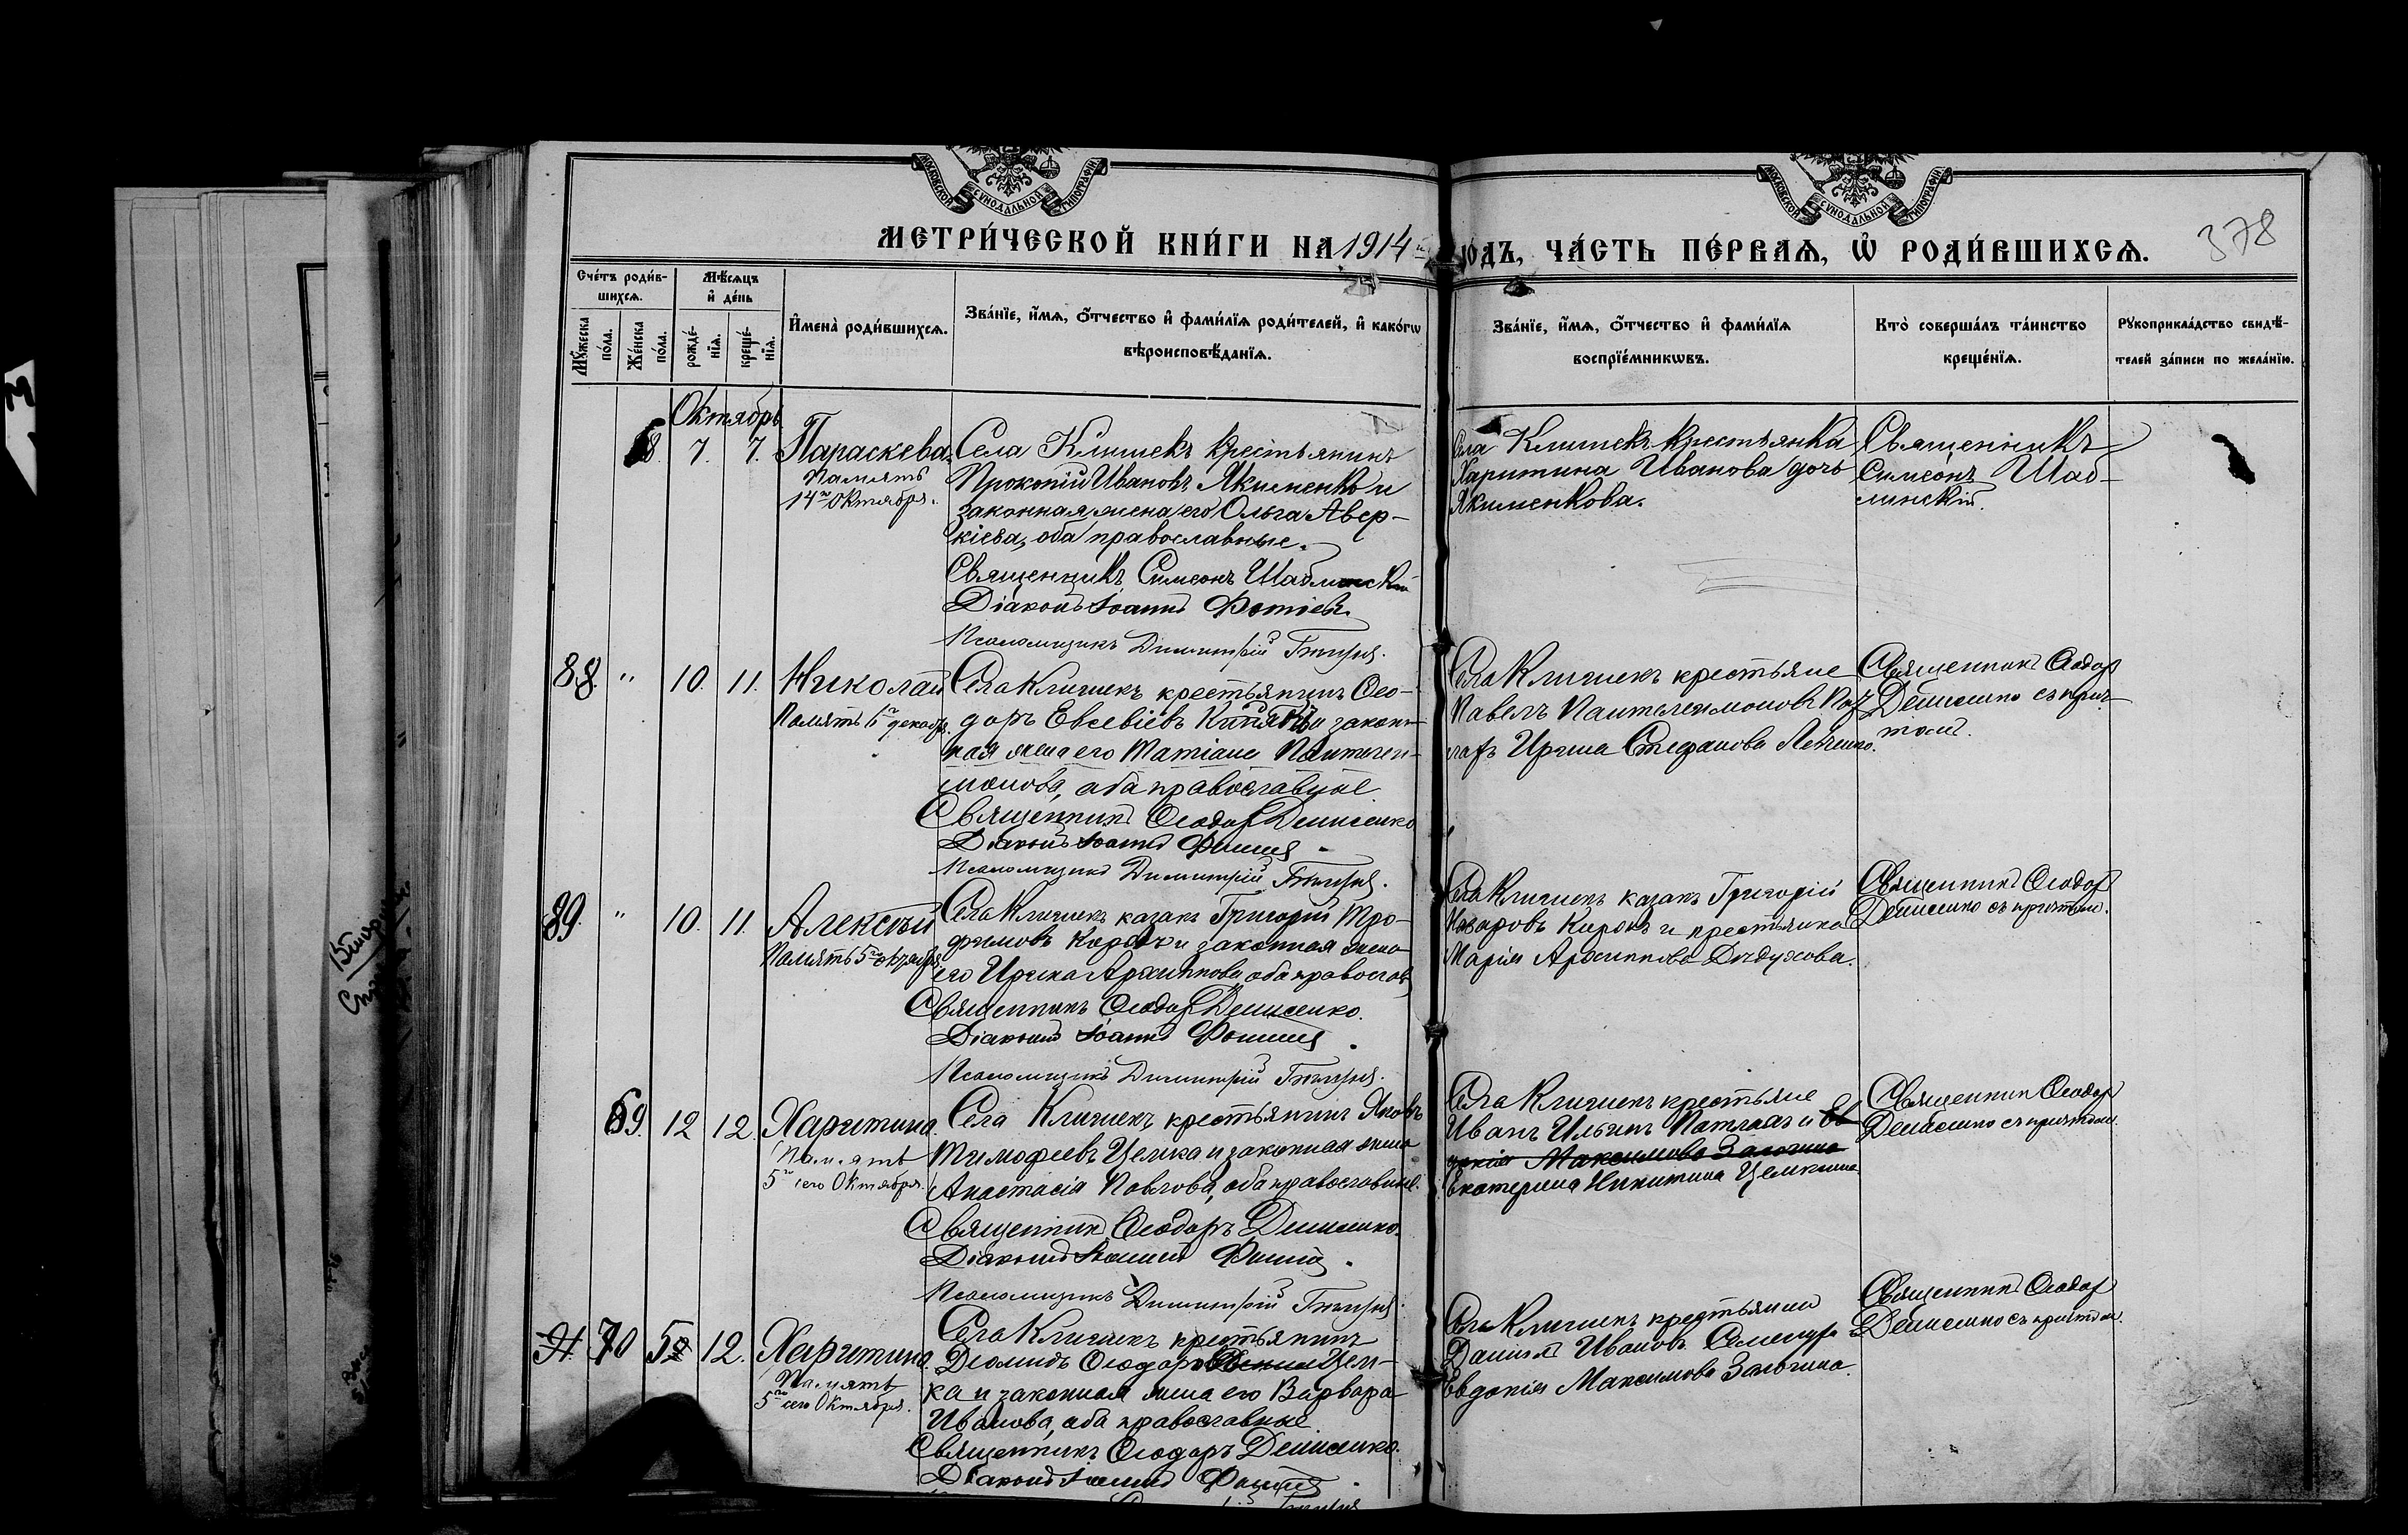 МОСКОВСКОЙ СУНОДАЛЬНОЙ ТИПОГРАФІИ
МОСКОВСКОЙ СУНОДАЛЬНОЙ ТИПОГРАФІИ
МЕТРИ́ЧЕСКОЙ КНИ́ГИ НА 1914 й
ГОДЪ, ЧА́СТЬ ПЕ́РВАѦ, Ѡ҆ РОДИ́ВШИХСѦ.
378
Сче́тъ роди́в-
шихсѧ.
Мѣ́сѧцъ
и҆ де́нь
Мꙋ́жеска по́ла.
Же́нска по́ла.
рожде́-нїѧ.
креще́-нїѧ.
И҆мена̀ роди́вшихсѧ.
Зва́нїе, и҆́мѧ, ѻ҆́тчество и҆ фами́лїѧ роди́телей, и҆ како́гѡ
вѣроисповѣ́данїѧ.
Зва́нїе, и҆́мѧ, ѻ҆́тчество и҆ фами́лїѧ
воспрїе́мникѡвъ.
Кто̀ соверша́лъ та́инство
креще́нїѧ.
Рꙋкоприкла́дство свидѣ́-
телей за́писи по жела́нїю.
Октябрь
68. 7. 7. Параскева.
Память
14го Октября.
Села Клишекъ крестьянинъ
Прокопій Ивановъ Якименко и
законная жена его Ольга Авер-
кіева, оба православные.
Священникъ Симеонъ Шаблинскій
Діаконъ Іоаннъ Фотіевъ.
Псаломщикъ Димитрій
Села Клишекъ крестьянка
Харитина Иванова дочь
Якименкова.
Священникъ
Симеонъ Шаб-
линскій.
88. " 10. 11. Николай
Память 6го декабр.
Села Клишекъ крестьянинъ Ѳео-
доръ Евсевіевъ и закон-
ная жена его Татіана Пантелеи-
монова, оба православные
Священникъ Ѳеодоръ Денисенко
Діаконъ Іоаннъ
Псаломщикъ Димитрій
Села Клишекъ крестьяне
Павелъ Пантелеимоновъ
Ирина Стефанова
Священникъ Ѳеодор
Денисенко съ прич-
томъ.
89. " 10. 11. Алексѣй
Память 5го октября
Села Клишекъ казакъ Григорій Тро-
фимовъ и законная жена
его Ирина Архиппова оба православ.
Священникъ Ѳеодоръ Денисенко.
Діаконъ Іоаннъ
Псаломщикъ Димитрій
Села Клишекъ казакъ Григорій
Назаровъ и крестьянка
Марія Архиппова
Священникъ Ѳеодор
Денисенко съ причтом.
69. 12 12. Харитина.
Память
5го сего Октября.
Села Клишекъ крестьянинъ Яковъ
Тимофеевъ Цемка и законная жена
Анастасія Павлова, оба православные.
Священникъ Ѳеодоръ Денисенко.
Діаконъ Іоаннъ
Псаломщикъ Димитрій
Села Клишекъ крестьяне
Иванъ Ильинъ и Ев
докія Максимова
Екатерина Никитина Цемкина
Священник Ѳеодор
Денисенко съ причтом.
70 12. Харитина.
Память
5го сего Октября.
Села Клишекъ крестьянинъ
Діомидъ Ѳеодоровъ Цем-
ка и законная жена его Варвара
Иванова, оба православные
Священникъ Ѳеодоръ Денисенко.
Діаконъ Іоаннъ
Села Клишекъ крестьянин
Даніил Ивановъ
Евдокія Максимова
Священникъ Ѳеодор
Денисенко съ причтом.